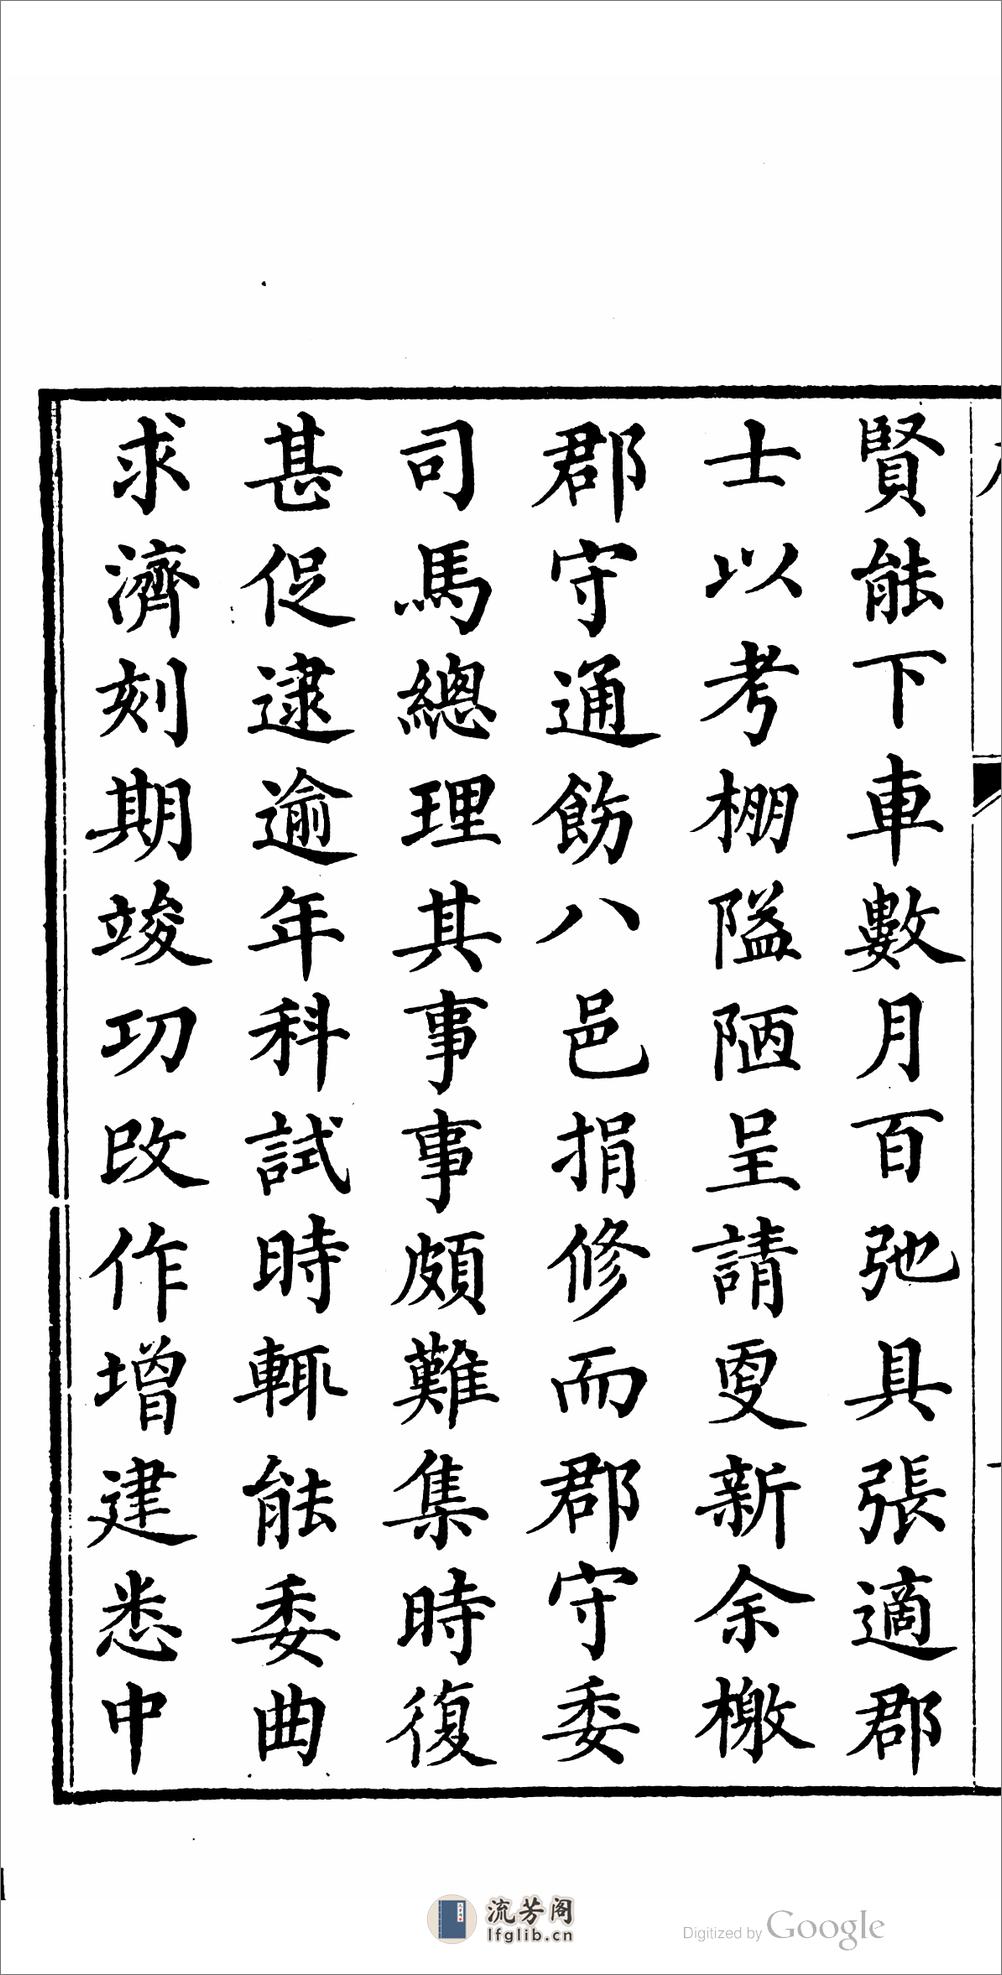 賢能下車數月百弛具張適郡
士以考棚隘陋呈請更新余檄
郡守通飭八邑捐修而郡守委
司馬總理其事事頗難集時復
甚促逮逾年科試時輒能委曲
求濟刻期竣功改作增建悉中
流芳阁
lfglib.cn
Digitized by Google